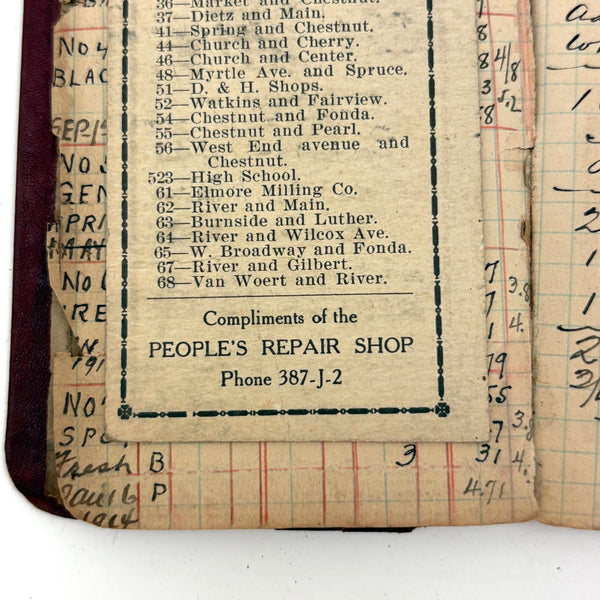 36—Market and Chestnut.
37—Dietz and Main.
41—Spring and Chestnut.
44—Church and Cherry.
46—Church and Center.
48—Myrtle Ave. and Spruce.
51—D. & H. Shops.
52—Watkins and Fairview.
54—Chestnut and Fonda.
55—Chestnut and Pearl.
56—West End avenue and
Chestnut.
523—High School.
61—Elmore Milling Co.
62—River and Main.
63—Burnside and Luther.
64—River and Wilcox Ave.
65—W. Broadway and Fonda.
67—River and Gilbert.
68—Van Woert and River.
Compliments of the
PEOPLE'S REPAIR SHOP
Phone 387-J-2
No 4
BLAC
SEP/1
No
GEN
APRI
MAY
No
RE
191
No
SPE
Fresh B 3 31 4.
P 4.71
1914
4/8
5.2
3.8
4.
79
55
3.8